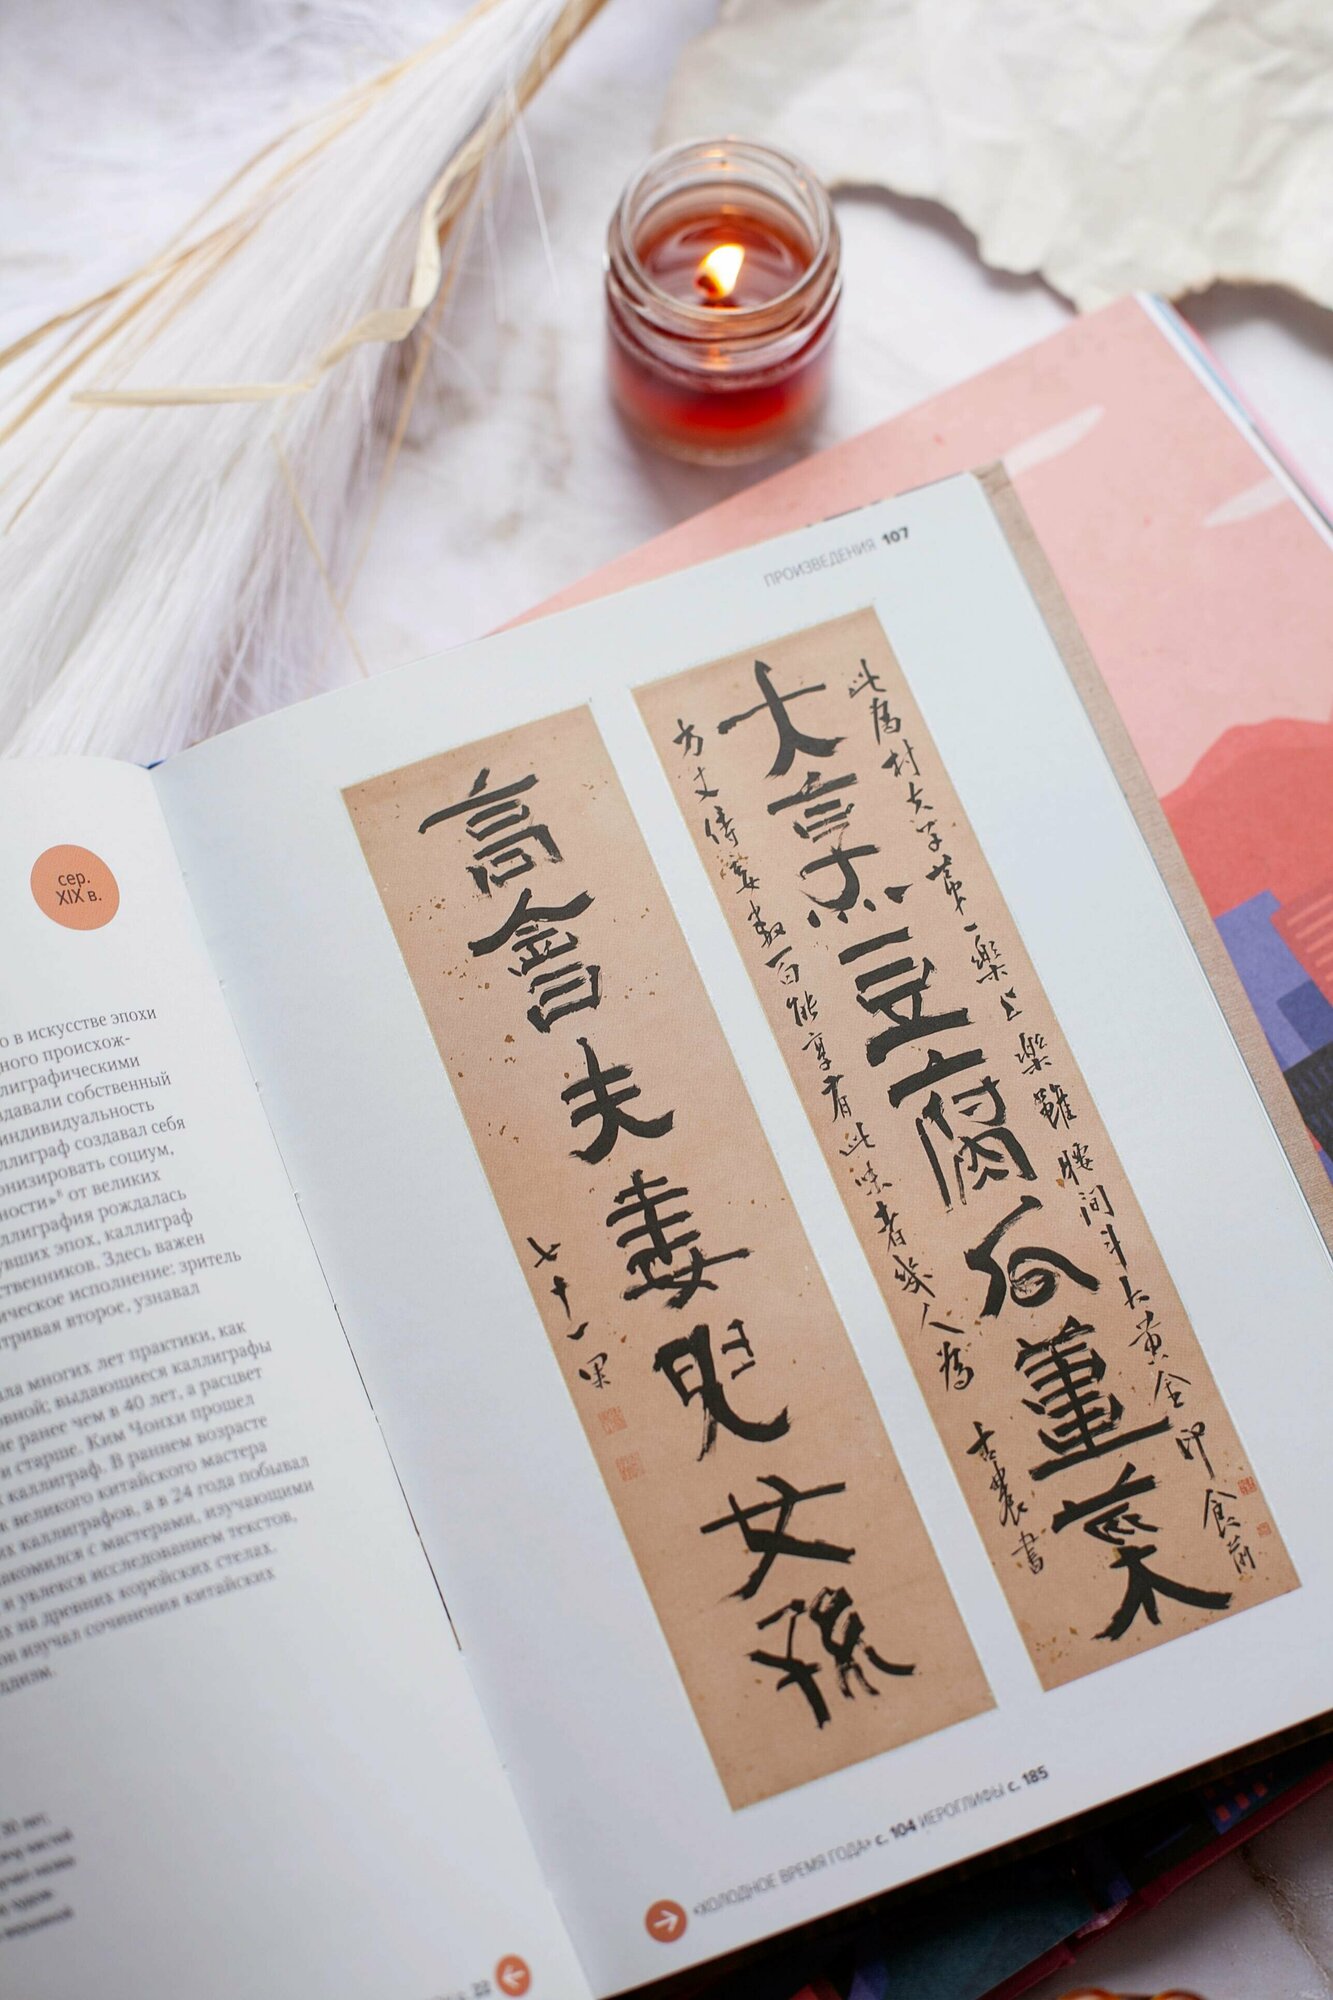 сер.
XIX в.
о в искусстве эпохи
ного происхож-
лиграфическими
здавали собственный
индивидуальность
ллиграф создавал себя
онизировать социум,
ности»⁸ от великих
ллиграфия рождалась
увших эпох, каллиграф
ственников. Здесь важен
ическое исполнение: зритель
тривая второе, узнавал
ала многих лет практики, как
овной; выдающиеся каллиграфы
не ранее чем в 40 лет, а расцвет
и старше. Ким Чонхи прошел
каллиграф. В раннем возрасте
к великого китайского мастера
их каллиграфов, а в 24 года побывал
акомился с мастерами, изучающими
и увлекся исследованием текстов,
х на древних корейских стелах.
он изучал сочинения китайских
ддизм.
ПРОИЗВЕДЕНИЯ 107
此為村夫子第一樂上樂雖腰間斗大黃金印食前
大烹豆腐瓜薑菜
方丈侍妾數百能享有此味者幾人為
杏農書
高會夫妻兒女孫
七十一果
«ХОЛОДНОЕ ВРЕМЯ ГОДА» с. 104 ИЕРОГЛИФЫ с. 185